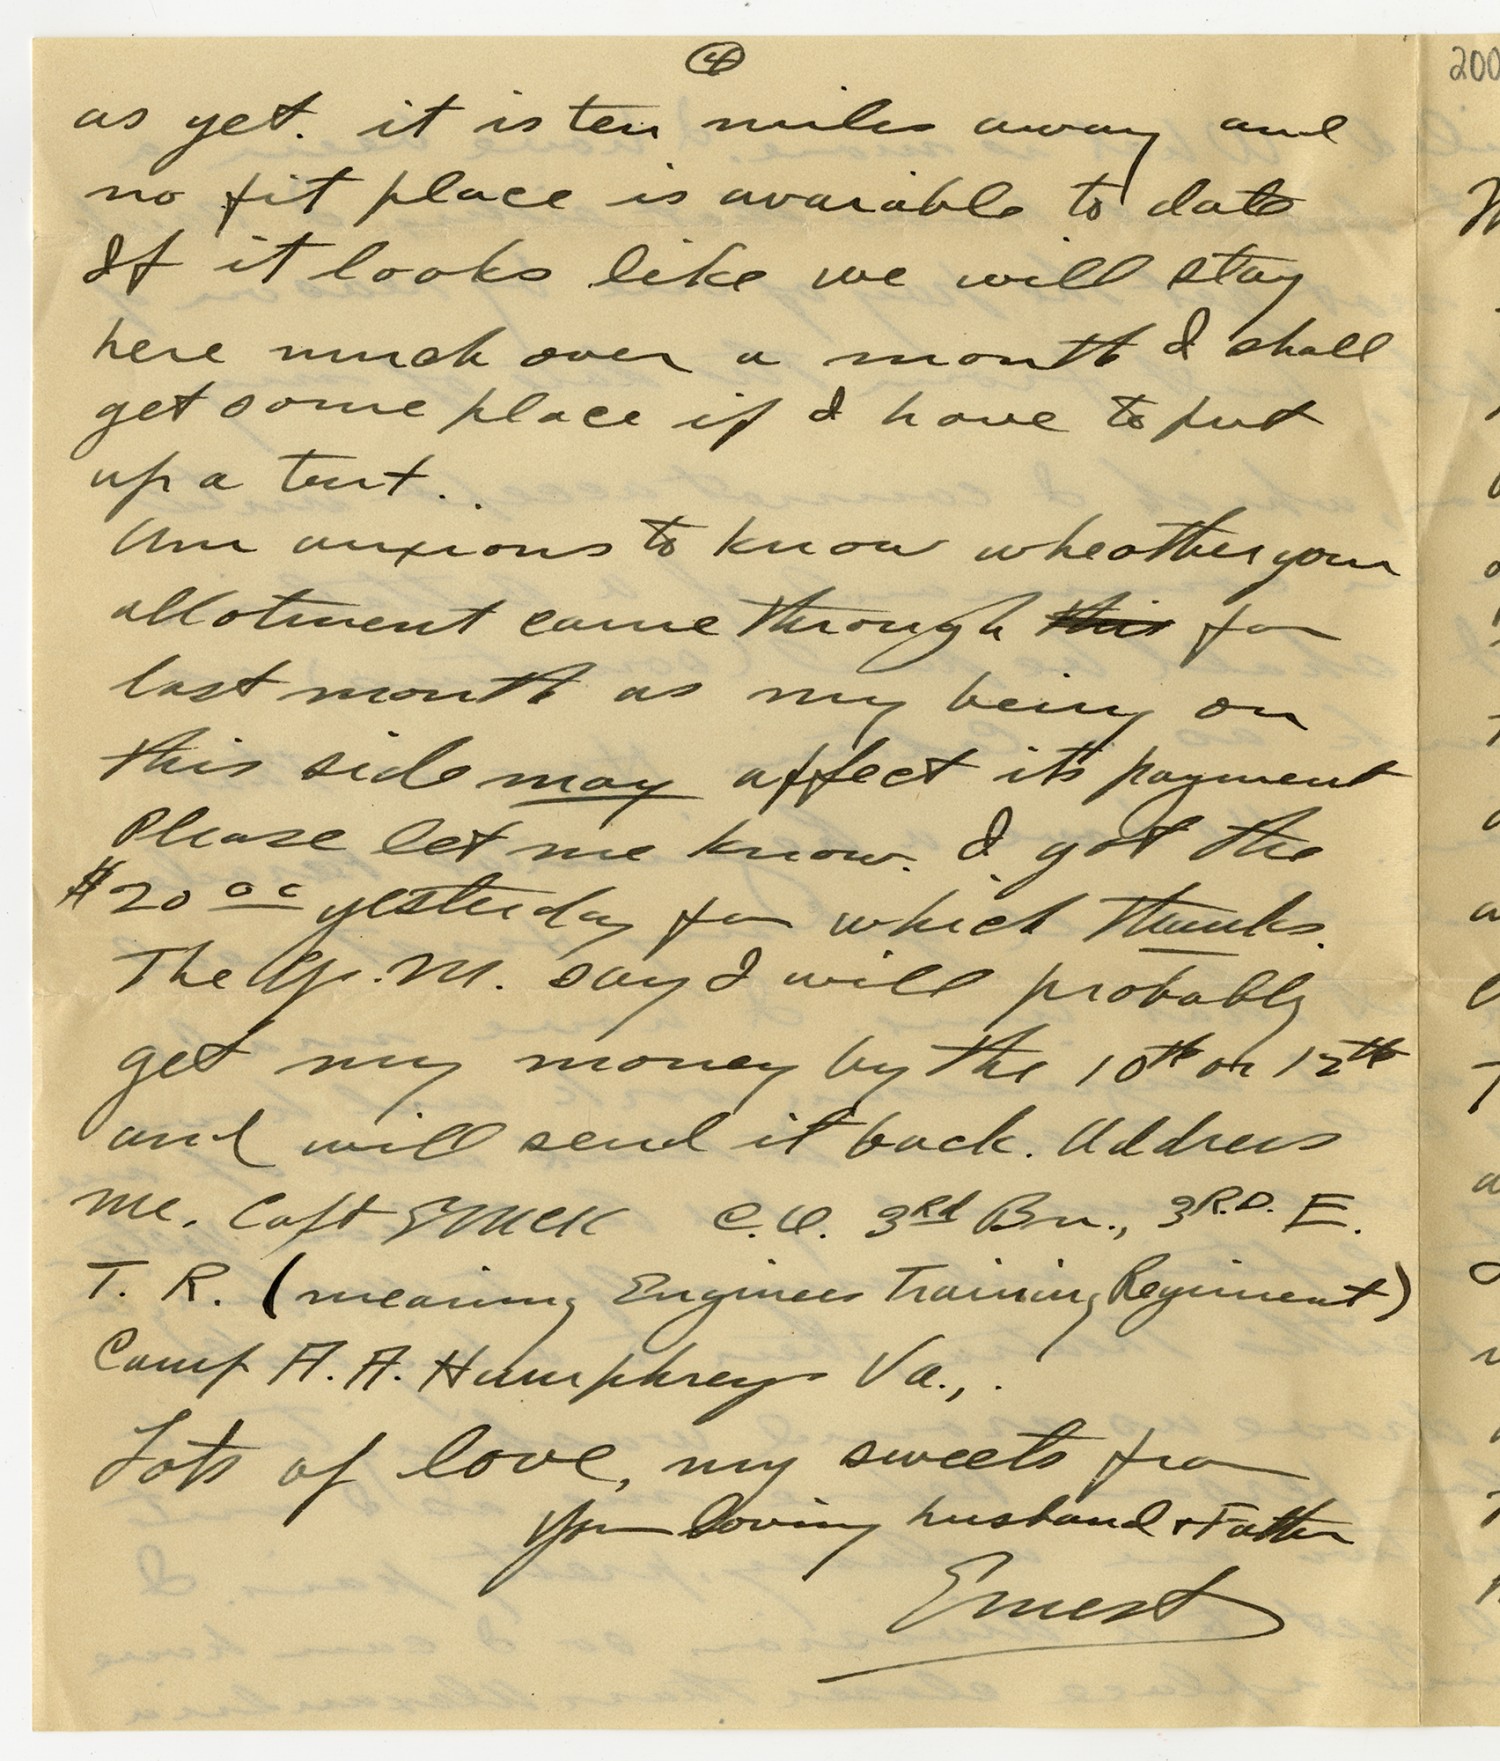 ④
200
as yet. it is ten miles away and
no fit place is avaiable to date
If it looks like we will stay
here much over a month I shall
get some place if I have to put
up a tent.
Am anxious to know wheather your
allotment came through this for
last month as my being on
this side may affect its payment
Please let me know. I got the
$20 00 yesterday for which thanks.
The Q.M. say I will probably
get my money by the 10th or 12th
and will send it back. Address
me. Capt C.O. 3rd Bn., 3R.D. E.
T. R. (meaning Engineer Training Regiment)
Camp A. A. Humphreys Va.,.
Lots of love, my sweets from
Your loving husband & Father
Ernest